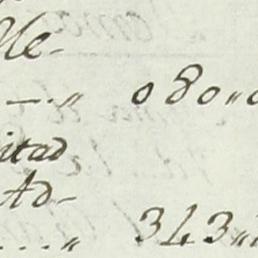 He-
— . „ 080„0
itad
Ad-
.... „ 343„